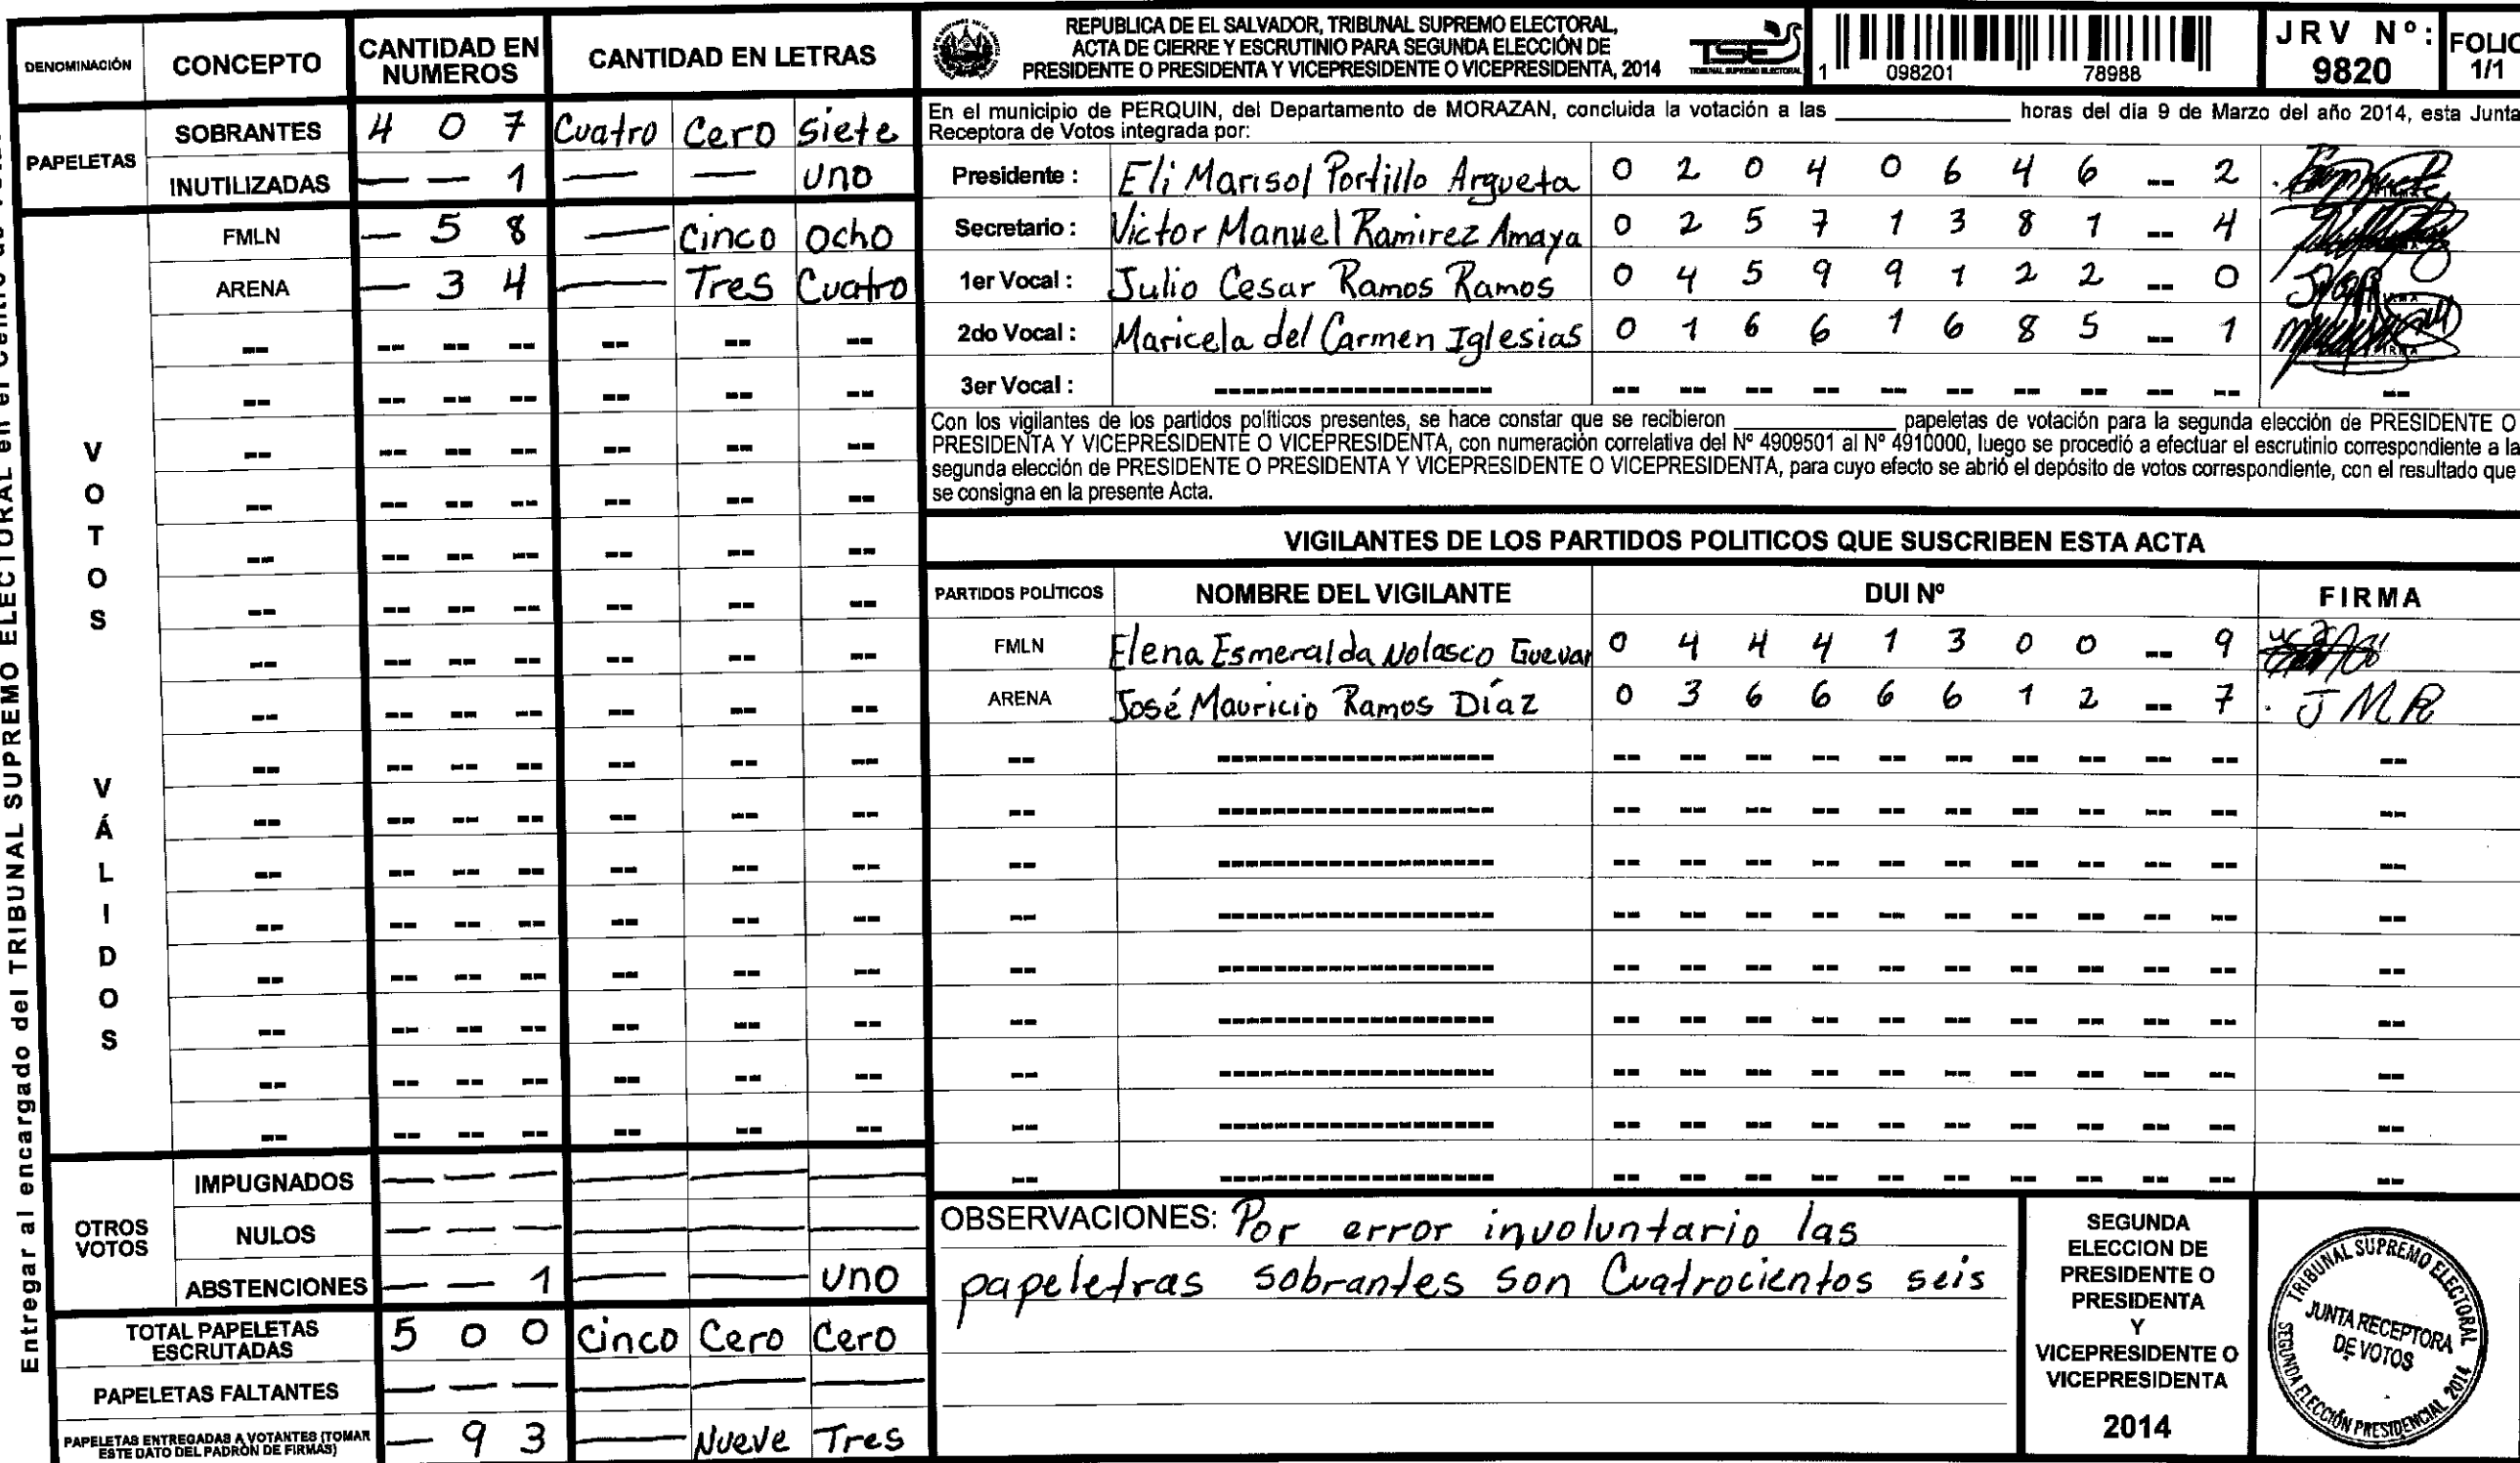 Entregar al encargado del TRIBUNAL SUPREMO ELECTORAL en el Centro de
DENOMINACIÓN CONCEPTO CANTIDAD EN NUMEROS CANTIDAD EN LETRAS
PAPELETAS
SOBRANTES 4 0 7 Cuatro Cero Siete
INUTILIZADAS — — 1 — — uno
VOTOS VÁLIDOS
FMLN — 5 8 — Cinco Ocho
ARENA — 3 4 — Tres Cuatro
OTROS VOTOS
IMPUGNADOS — — — — — —
NULOS — — — — — —
ABSTENCIONES — — 1 — — uno
TOTAL PAPELETAS ESCRUTADAS 5 0 0 Cinco Cero Cero
PAPELETAS FALTANTES — — — — — —
PAPELETAS ENTREGADAS A VOTANTES (TOMAR ESTE DATO DEL PADRÓN DE FIRMAS) — 9 3 — Nueve Tres
REPUBLICA DE EL SALVADOR, TRIBUNAL SUPREMO ELECTORAL,
ACTA DE CIERRE Y ESCRUTINIO PARA SEGUNDA ELECCIÓN DE
PRESIDENTE O PRESIDENTA Y VICEPRESIDENTE O VICEPRESIDENTA, 2014
TSE
TRIBUNAL SUPREMO ELECTORAL
1 098201 78988
JRV Nº: 9820
FOLIO 1/1
En el municipio de PERQUIN, del Departamento de MORAZAN, concluida la votación a las ____________ horas del día 9 de Marzo del año 2014, esta Junta
Receptora de Votos integrada por:
Presidente : Eli Marisol Portillo Argueta 0 2 0 4 0 6 4 6 -- 2
Secretario : Victor Manuel Ramirez Amaya 0 2 5 7 1 3 8 1 -- 4
1er Vocal : Julio Cesar Ramos Ramos 0 4 5 9 9 1 2 2 -- 0
2do Vocal : Maricela del Carmen Iglesias 0 1 6 6 1 6 8 5 -- 1
3er Vocal : ------------------ -- -- -- -- -- -- -- -- -- -- --
Con los vigilantes de los partidos políticos presentes, se hace constar que se recibieron ____________ papeletas de votación para la segunda elección de PRESIDENTE O
PRESIDENTA Y VICEPRESIDENTE O VICEPRESIDENTA, con numeración correlativa del Nº 4909501 al Nº 4910000, luego se procedió a efectuar el escrutinio correspondiente a la
segunda elección de PRESIDENTE O PRESIDENTA Y VICEPRESIDENTE O VICEPRESIDENTA, para cuyo efecto se abrió el depósito de votos correspondiente, con el resultado que
se consigna en la presente Acta.
VIGILANTES DE LOS PARTIDOS POLITICOS QUE SUSCRIBEN ESTA ACTA
PARTIDOS POLÍTICOS NOMBRE DEL VIGILANTE DUI Nº FIRMA
FMLN Elena Esmeralda Nolasco Guevar 0 4 4 4 1 3 0 0 -- 9
ARENA José Mauricio Ramos Díaz 0 3 6 6 6 6 1 2 -- 7 JMR
OBSERVACIONES: Por error involuntario las
papeletras sobrantes son Cuatrocientos seis
SEGUNDA
ELECCION DE
PRESIDENTE O
PRESIDENTA
Y
VICEPRESIDENTE O
VICEPRESIDENTA
2014
TRIBUNAL SUPREMO ELECTORAL
JUNTA RECEPTORA
DE VOTOS
SEGUNDA ELECCIÓN PRESIDENCIAL 2014